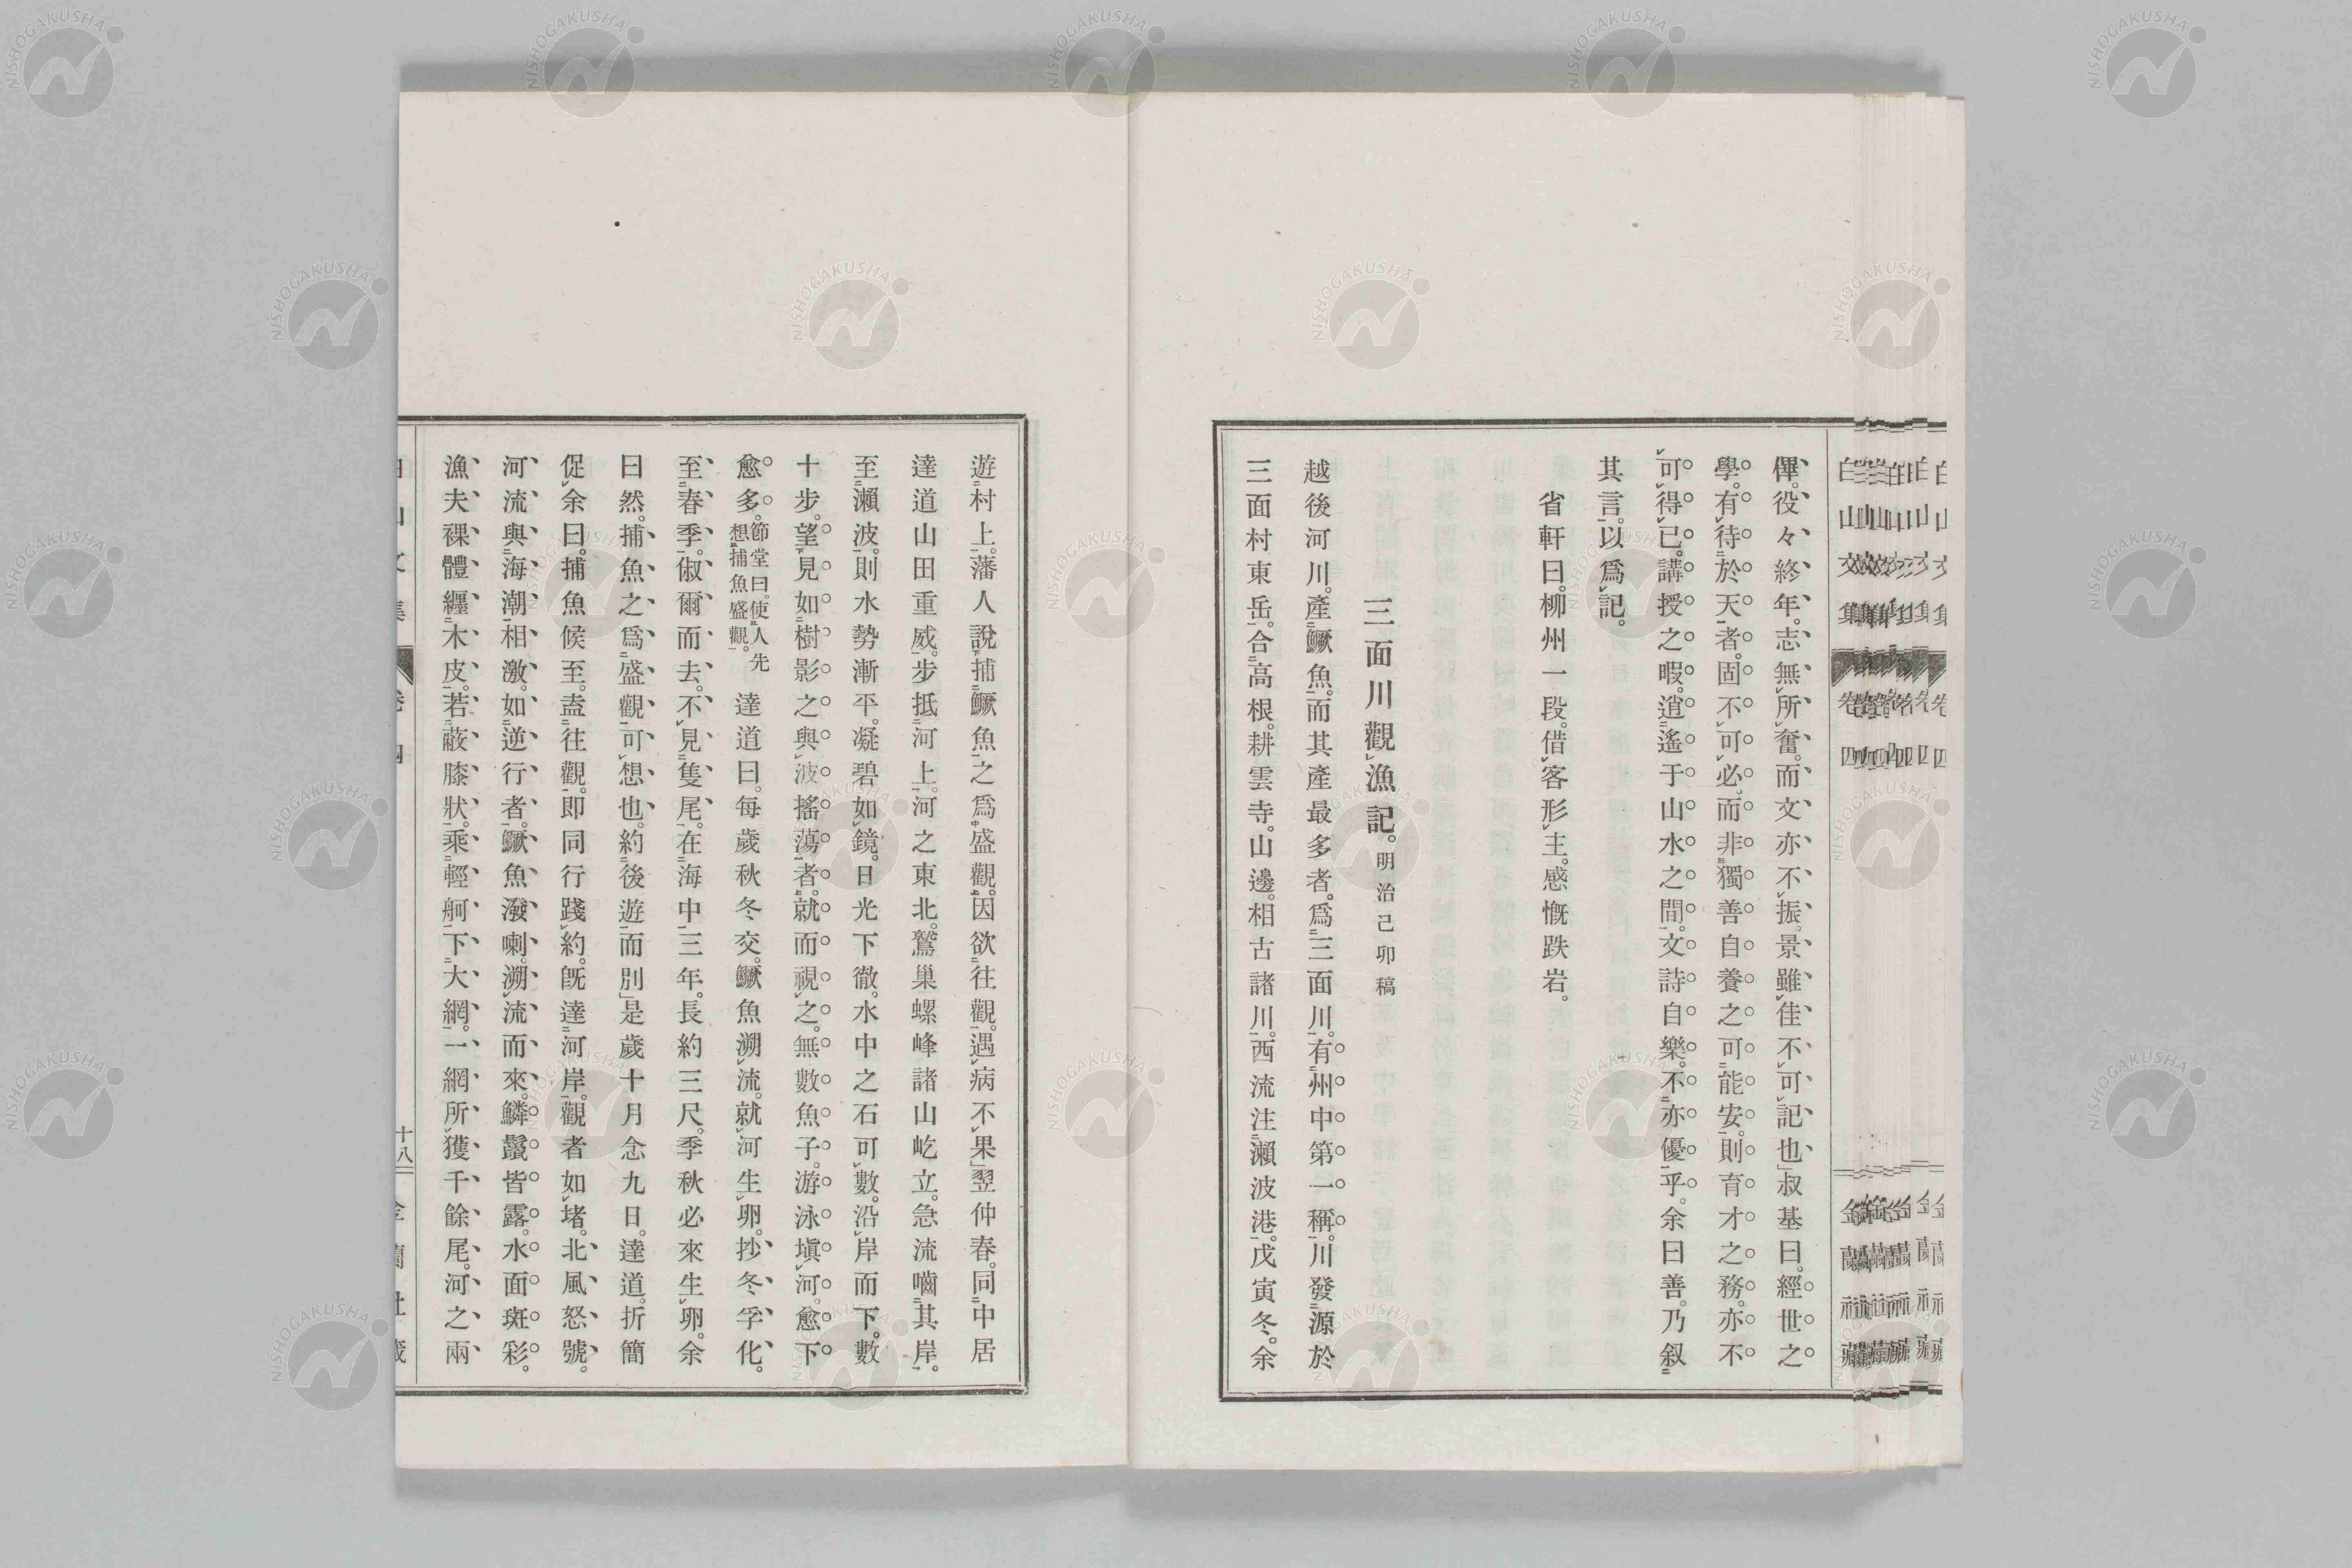 僤。役々終年。志無所奮。而文亦不振。景雖佳不可記也」叔基曰。經世之
學。有待於天者。固不可必。而非獨善自養之可能安。則育才之務。亦不
可得已。講授之暇。逍遙于山水之間。文詩自樂。不亦優乎。余曰善。乃叙
其言。以爲記。
省軒曰。柳州一段。借客形主。感慨跌宕。
三面川觀漁記。明治己卯稿
越後河川。產鱖魚。而其產最多者。爲三面川。有州中第一稱。川發源於
三面村東岳。合高根。耕雲寺。山邊。相古諸川。西流注瀨波港。戊寅冬。余
遊村上。藩人說捕鱖魚之爲盛觀。因欲往觀。遇病不果」翌仲春。同中居
達道山田重威。步抵河上。河之東北。鷲巢螺峰諸山屹立。急流嚙其岸。
至瀨波。則水勢漸平。凝碧如鏡。日光下徹。水中之石可數。沿岸而下。數
十步。望見如樹影之與波搖蕩者。就而視之。無數魚子。游泳塡河。愈下
愈多。節堂曰。使人先想捕魚盛觀。達道曰。每歲秋冬交。鱖魚溯流。就河生卵。抄冬孚化。
至春季。俶爾而去。不見隻尾。在海中三年。長約三尺。季秋必來生卵。余
曰然。捕魚之爲盛觀可想也。約後遊而別」是歲十月念九日。達道。折簡
促余曰。捕魚候至。盍往觀。即同行踐約。旣達河岸。觀者如堵。北風怒號。
河流與海潮相激。如逆行者。鱖魚潑喇。溯流而來。鱗鬣皆露。水面斑彩。
漁夫裸體纒木皮。若蔽膝狀。乘輕舸下大網。一網所獲千餘尾。河之兩
十八